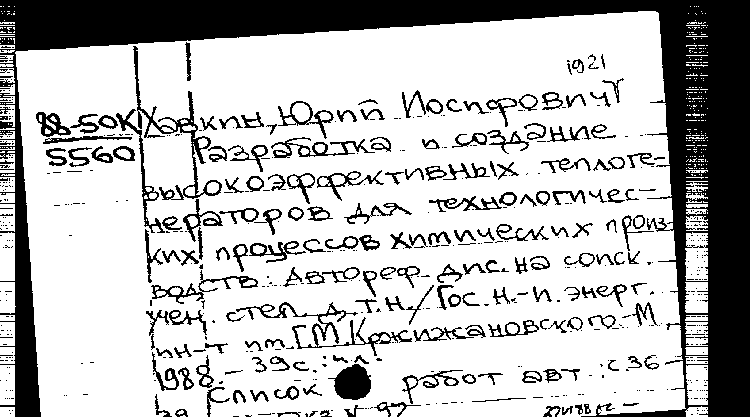 1921
88-50К Хавкин, Юрий Иосифович
5560 Разработка и создание
высокоэффективных теплоге-
нераторов для технологичес-
ких процессов химических произ-
водств: Автореф. дис. на соиск.
учен. степ. д.т.н. / Гос. н.-и. энерг.
ин-т им. Г.М. Кржижановского. - М.,
1988. - 39 с.: ил.
Список работ авт.: с. 36-
39